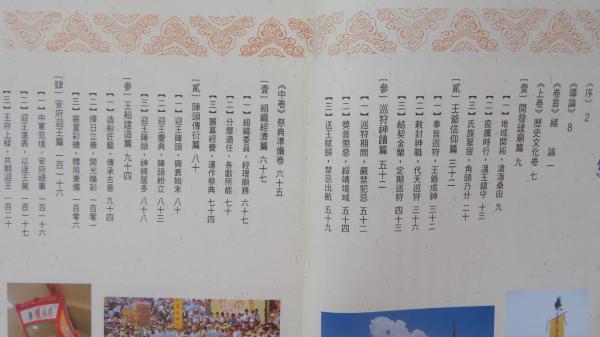 《序》 2
《導論》 8
《卷首》緒 論 一
《上卷》歷史文化卷 七
〔壹〕開發建廟篇 九
【一】地域開拓，滄海桑田 九
【二】疫癘時行，溫王鎮守 十三
【三】氏族聚居，角頭乃分 二十
〔貳〕王爺信仰篇 三十二
【一】奉旨巡狩，王爺成神 三十二
【二】敕封神職，代天巡狩 三十六
【三】結契金蘭，定期巡狩 四十三
〔參〕巡狩神蹟篇 五十二
【一】巡狩期間，嚴禁犯忌 五十二
【二】獎善懲惡，綏靖境域 五十四
【三】送王賦歸，禁忌出航 五十九
《中卷》祭典準備卷 六十五
〔壹〕組織經濟篇 六十七
【一】組織委員，經理廟務 六十七
【二】分層適任，各獻所能 七十
【三】籌募經費，運作祭典 七十四
〔貳〕陣頭傳衍篇 八十
【一】迎王陣頭，興衰始末 八十
【二】迎王慶典，陣頭紛立 八十三
【三】迎王陣頭，神將居多 八十八
〔參〕王船建造篇 九十四
【一】造船匠藝，傳承古意 九十四
【二】擇日立厝，開光煥彩 一百零一
【三】裝置彩繪，體用兼備 一百零六
〔肆〕安府迎王篇 一百一十六
【一】中軍蒞境，安府視事 一百一十六
【二】迎王進表，以逹王駕 一百一十
【三】王府上樑，共期迎王 一百二十